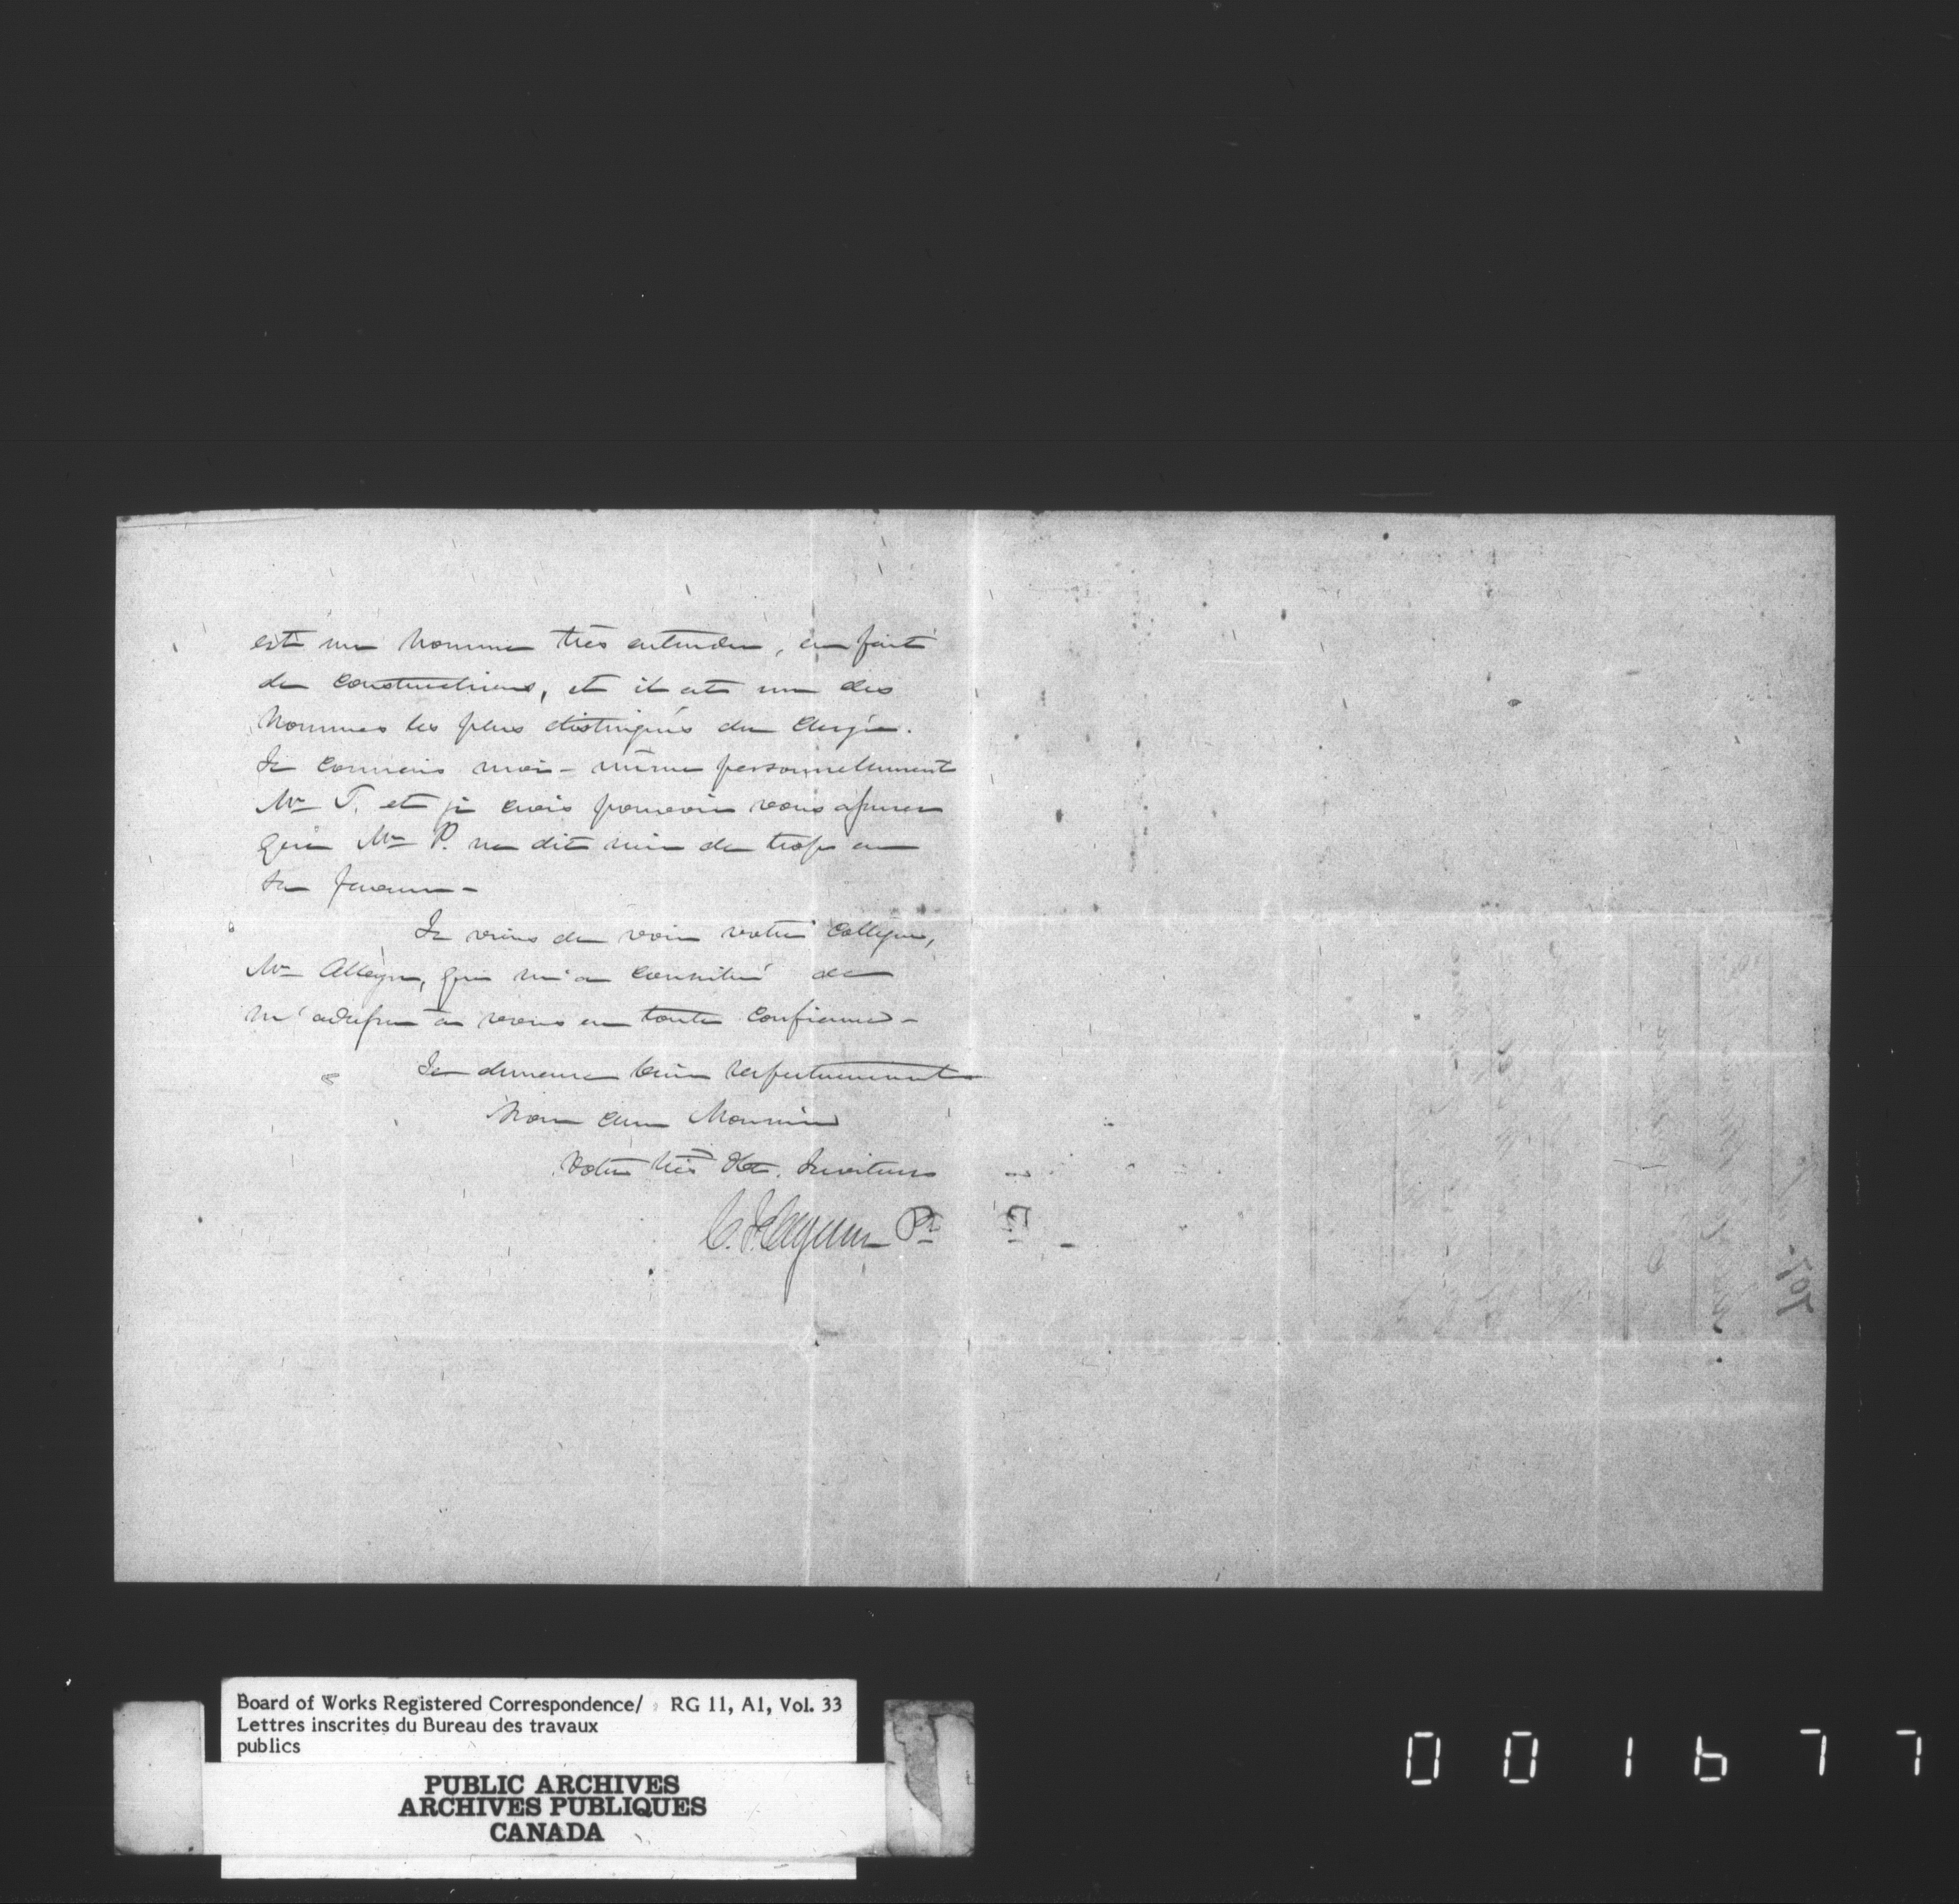 est un homme très entendu, en fait
de constructions, et il est un des
hommes les plus distingués du clergé.
Je connais moi-même personnellement
Mr T. et je crois pouvoir vous assurer
que Mr P. ne dit rien de trop en
sa faveur -
Je viens de voir votre Collègue,
Mr Alleyn, qui m'a conseillé de
m'adresser à vous en toute confiance -
Je demeure bien respectueusement
Mon cher Monsieur
Votre très Ht. Serviteur
C. F. Ptre
707
Board of Works Registered Correspondence/ RG 11, A1, Vol. 33
Lettres inscrites du Bureau des travaux
publics
PUBLIC ARCHIVES
ARCHIVES PUBLIQUES
CANADA
001677